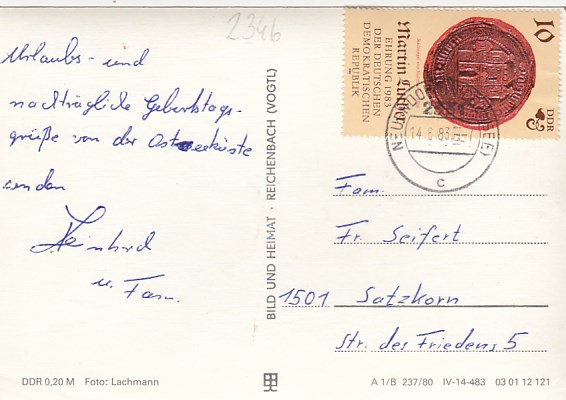 2346
Urlaubs- und
nachträgliche Geburtstags-
grüße von der Ostseeküste
senden
Reinhard
u. Fam.
BILD UND HEIMAT · REICHENBACH (VOGTL)
10
DDR
Martin Luther
EHRUNG 1983
DER DEUTSCHEN
DEMOKRATISCHEN
REPUBLIK
14.6.83
c
Fam.
Fr. Seifert
1501 Satzkorn
Str. des Friedens 5
DDR 0,20 M Foto: Lachmann
A 1/B 237/80 IV-14-483 03 01 12 121